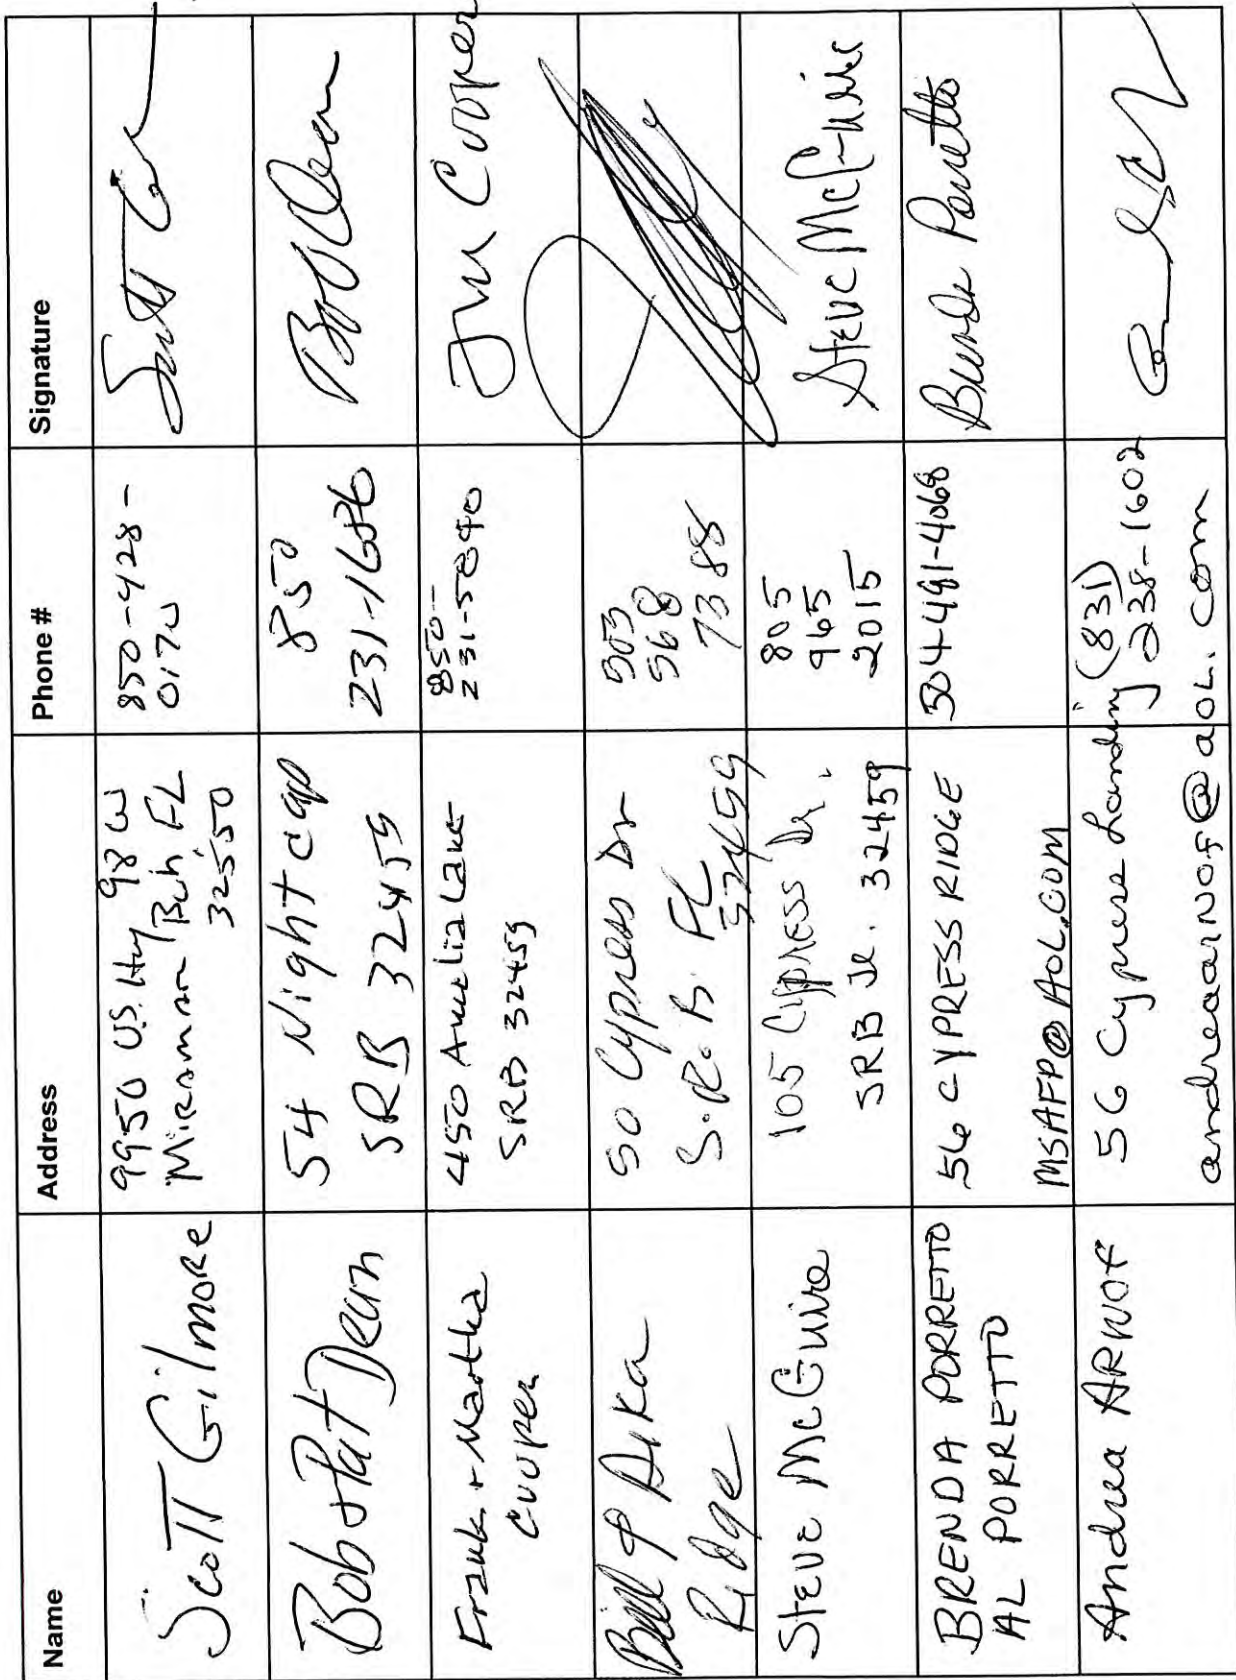 Name Address Phone # Signature
Scott Gilmore
9950 U.S. Hwy 98 W
Miramar Bch FL
32550
850-428-
0170
Bob + Pat Dean
54 Nightcap
SRB 32459
850
231-1686
Bob Dean
Frank + Martha
Cooper
450 Amelia Lane
SRB 32459
850-
231-5040
Cooper
Bill & Aika
Ridge
50 Cypress Dr
S.R.B. FL
32459
503
568
7388
Steve McGuire
105 Cypress Dr.
SRB Jl. 32459
805
965
2015
Steve McGuire
BRENDA PORRETTO
AL PORRETTO
56 CYPRESS RIDGE
MSAFP@AOL.COM
504 491-4068
Brenda Porretto
Andrea ARNOF
56 Cypress Landing
andreaarnof@aol.com
(831)
238-1602